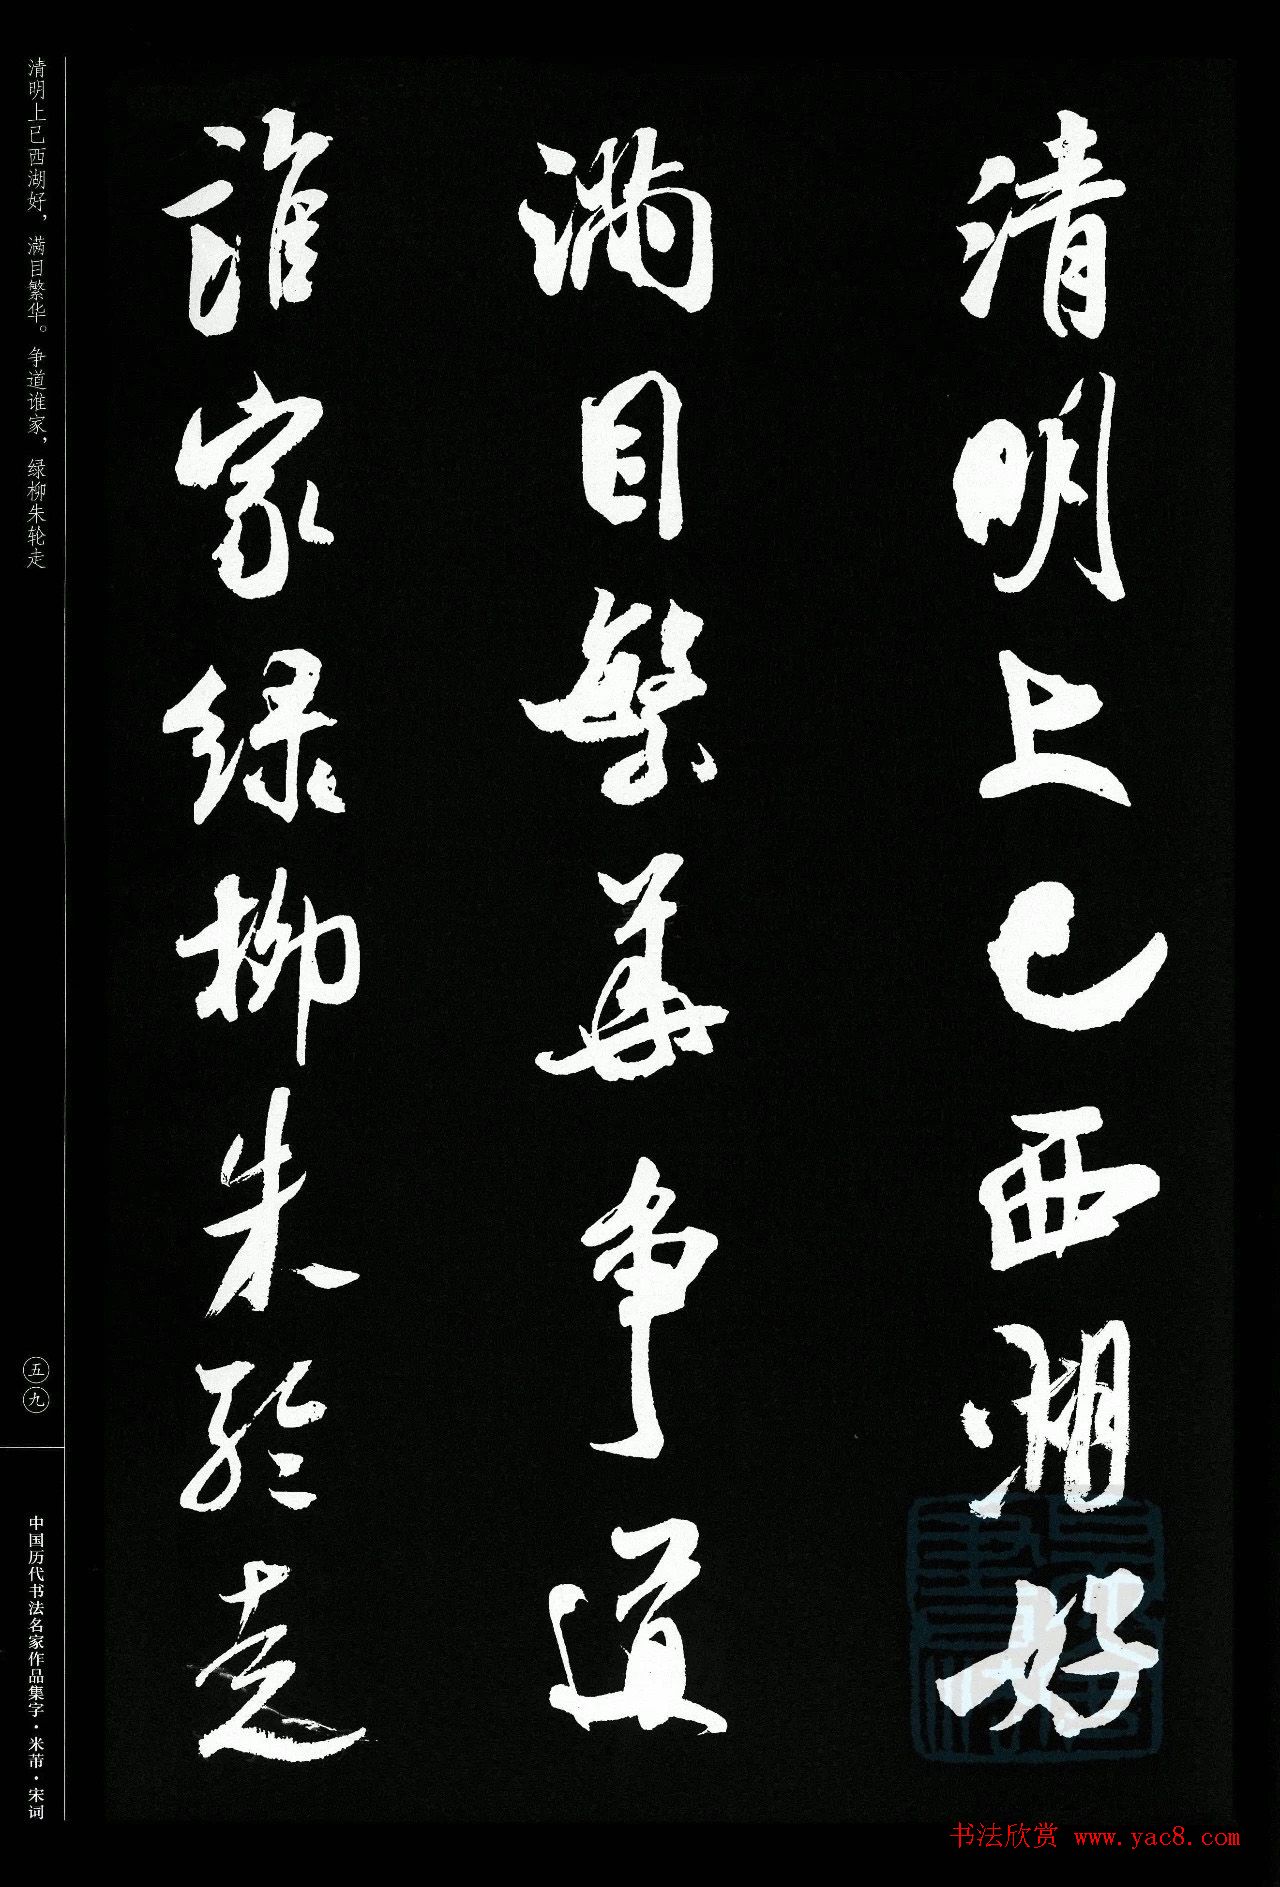 清明上已西湖好
满目繁華争道
誰家绿柳朱轮走
清明上已西湖好，满目繁华。争道谁家，绿柳朱轮走
五九
中国历代书法名家作品集字·米芾·宋词
书法欣赏 www.yac8.com